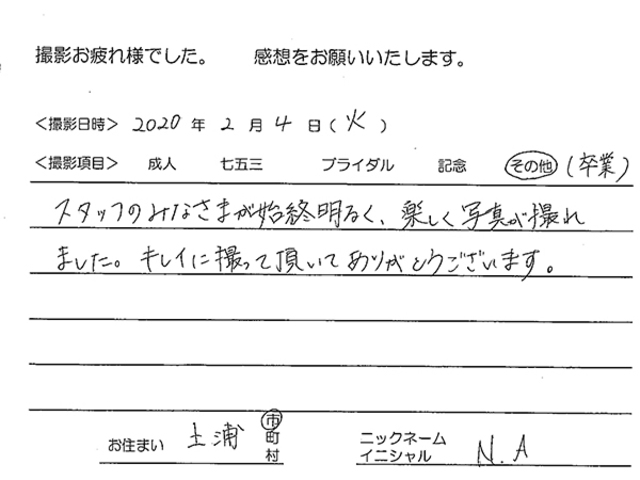 撮影お疲れ様でした。 感想をお願いいたします。
＜撮影日時＞ 2020 年 2 月 4 日（火）
＜撮影項目＞ 成人 七五三 ブライダル 記念 その他（卒業）
スタッフのみなさまが始終明るく、楽しく写真が撮れ
ました。キレイに撮って頂いてありがとうございます。
お住まい 土浦 市町村 ニックネーム イニシャル N.A